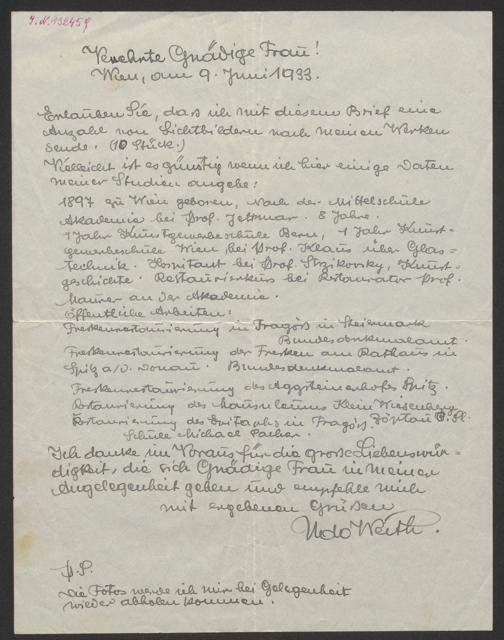 J.N. 132459
Verehrte Gnädige Frau!
Wien, am 9. Juni 1933.
Erlauben Sie, daß ich mit diesem Brief eine
Anzahl von Lichtbildern nach meinen Werken
sende. (10 Stück.)
Vielleicht ist es günstig wenn ich hier einige Daten
meiner Studien angebe:
1897 zu Wien geboren, nach der Mittelschule
Akademie bei Prof. Jettmar. 8 Jahre.
1 Jahr Kunstgewerbeschule Bern, 1 Jahr Kunst-
gewerbeschule Wien bei Prof. Klaus über Glas-
technik. Hospitant bei Prof. Strzikovsky, Kunst-
geschichte. Restaurierkurs bei Restaurator Prof.
Maurer an der Akademie.
Öffentliche Arbeiten:
Freskenrestaurierung in Tragöß in Steiermark
Bundesdenkmalamt.
Freskenrestaurierung der Fresken am Rathaus in
Spitz a/D. Donau. Bundesdenkmalamt.
Freskenrestaurierung des Aggsteinerhofes Spitz.
Restaurierung des Mausoleums Klein Wiesenberg
Restaurierung des Epitaphs in Tragöß
Schule Michael Pacher.
Ich danke im Voraus für die große Liebenswür-
digkeit, die sich Gnädige Frau in meiner
Angelegenheit geben und empfehle mich
mit ergebenen Grüßen
Udo Weith.
P.S.
Die Fotos werde ich mir bei Gelegenheit
wieder abholen kommen.